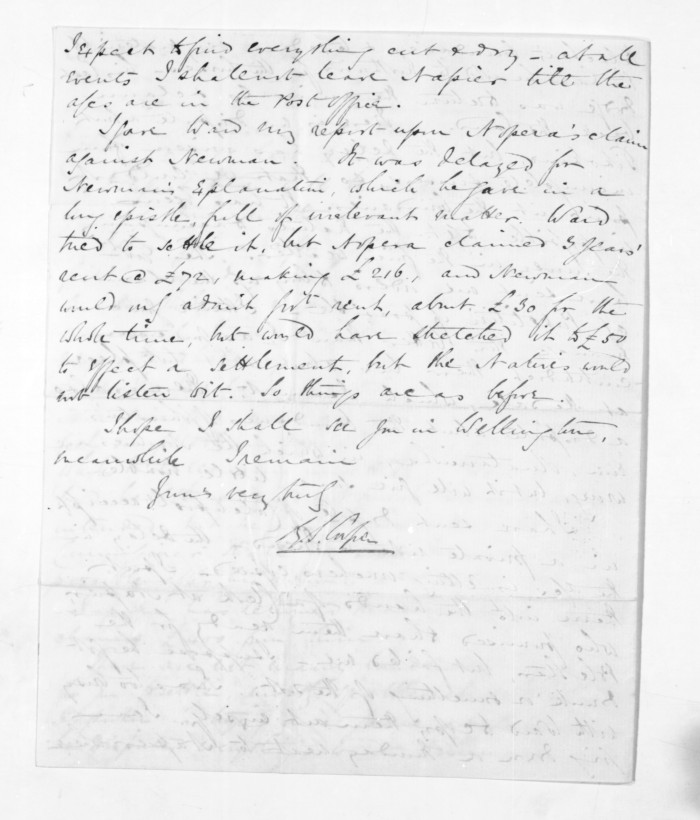 I expect to find everything cut & dry – at all
events I shall not leave Napier till the
are in the Post Office.
I gave Ward my report upon Nopera's claim
against Newman. It was delayed for
Newman's Explanation, which he gave in a
long epistle, full of irrelevant matter. Ward
tried to settle it, but Nopera claimed 3 years'
rent @ £72, making £216, and Newman
would only admit, for rent, about £30 for the
whole time, but would have stretched it to £50
to effect a settlement, but the Natives would
not listen to it. So things are as before.
I hope I shall see you in Wellington,
meanwhile I remain
Yours very truly
G. S. Cooper